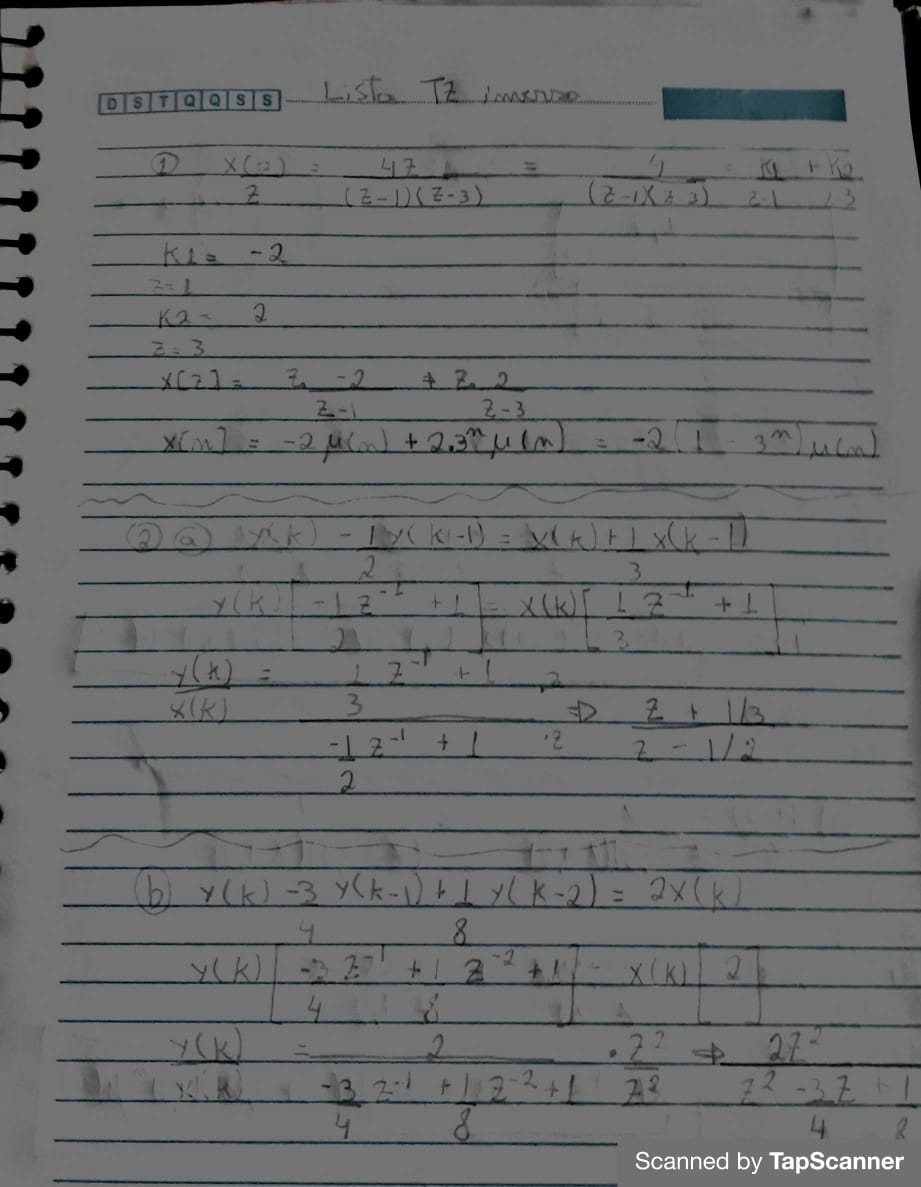 D S T Q Q S S Lista TZ inversa
① X(z)/z = 4z/(z-1)(z-3) = 4/(z-1)(z-3) = K1/z-1 + K2/z-3
K1 = -2
z=1
K2 = 2
z=3
X[z] = z. -2/z-1 + z. 2/z-3
x[n] = -2 μ(n) + 2.3ⁿ μ(n) = -2(1 - 3ⁿ) μ(n)
② ⓐ y(k) - 1/2 y(k-1) = x(k) + 1/3 x(k-1)
y(k) [-1/2 z⁻¹ + 1] = x(k) [1/3 z⁻¹ + 1]
y(k)/x(k) = 1/3 z⁻¹ + 1 .z / -1/2 z⁻¹ + 1 .z ⇒ z + 1/3 / z - 1/2
ⓑ y(k) - 3/4 y(k-1) + 1/8 y(k-2) = 2x(k)
y(k) [-3/4 z⁻¹ + 1/8 z⁻² + 1] = x(k) [2]
y(k)/x(k) = 2 / -3/4 z⁻¹ + 1/8 z⁻² + 1 . z²/z² ⇒ 2z² / z² - 3/4 z + 1/8
Scanned by TapScanner